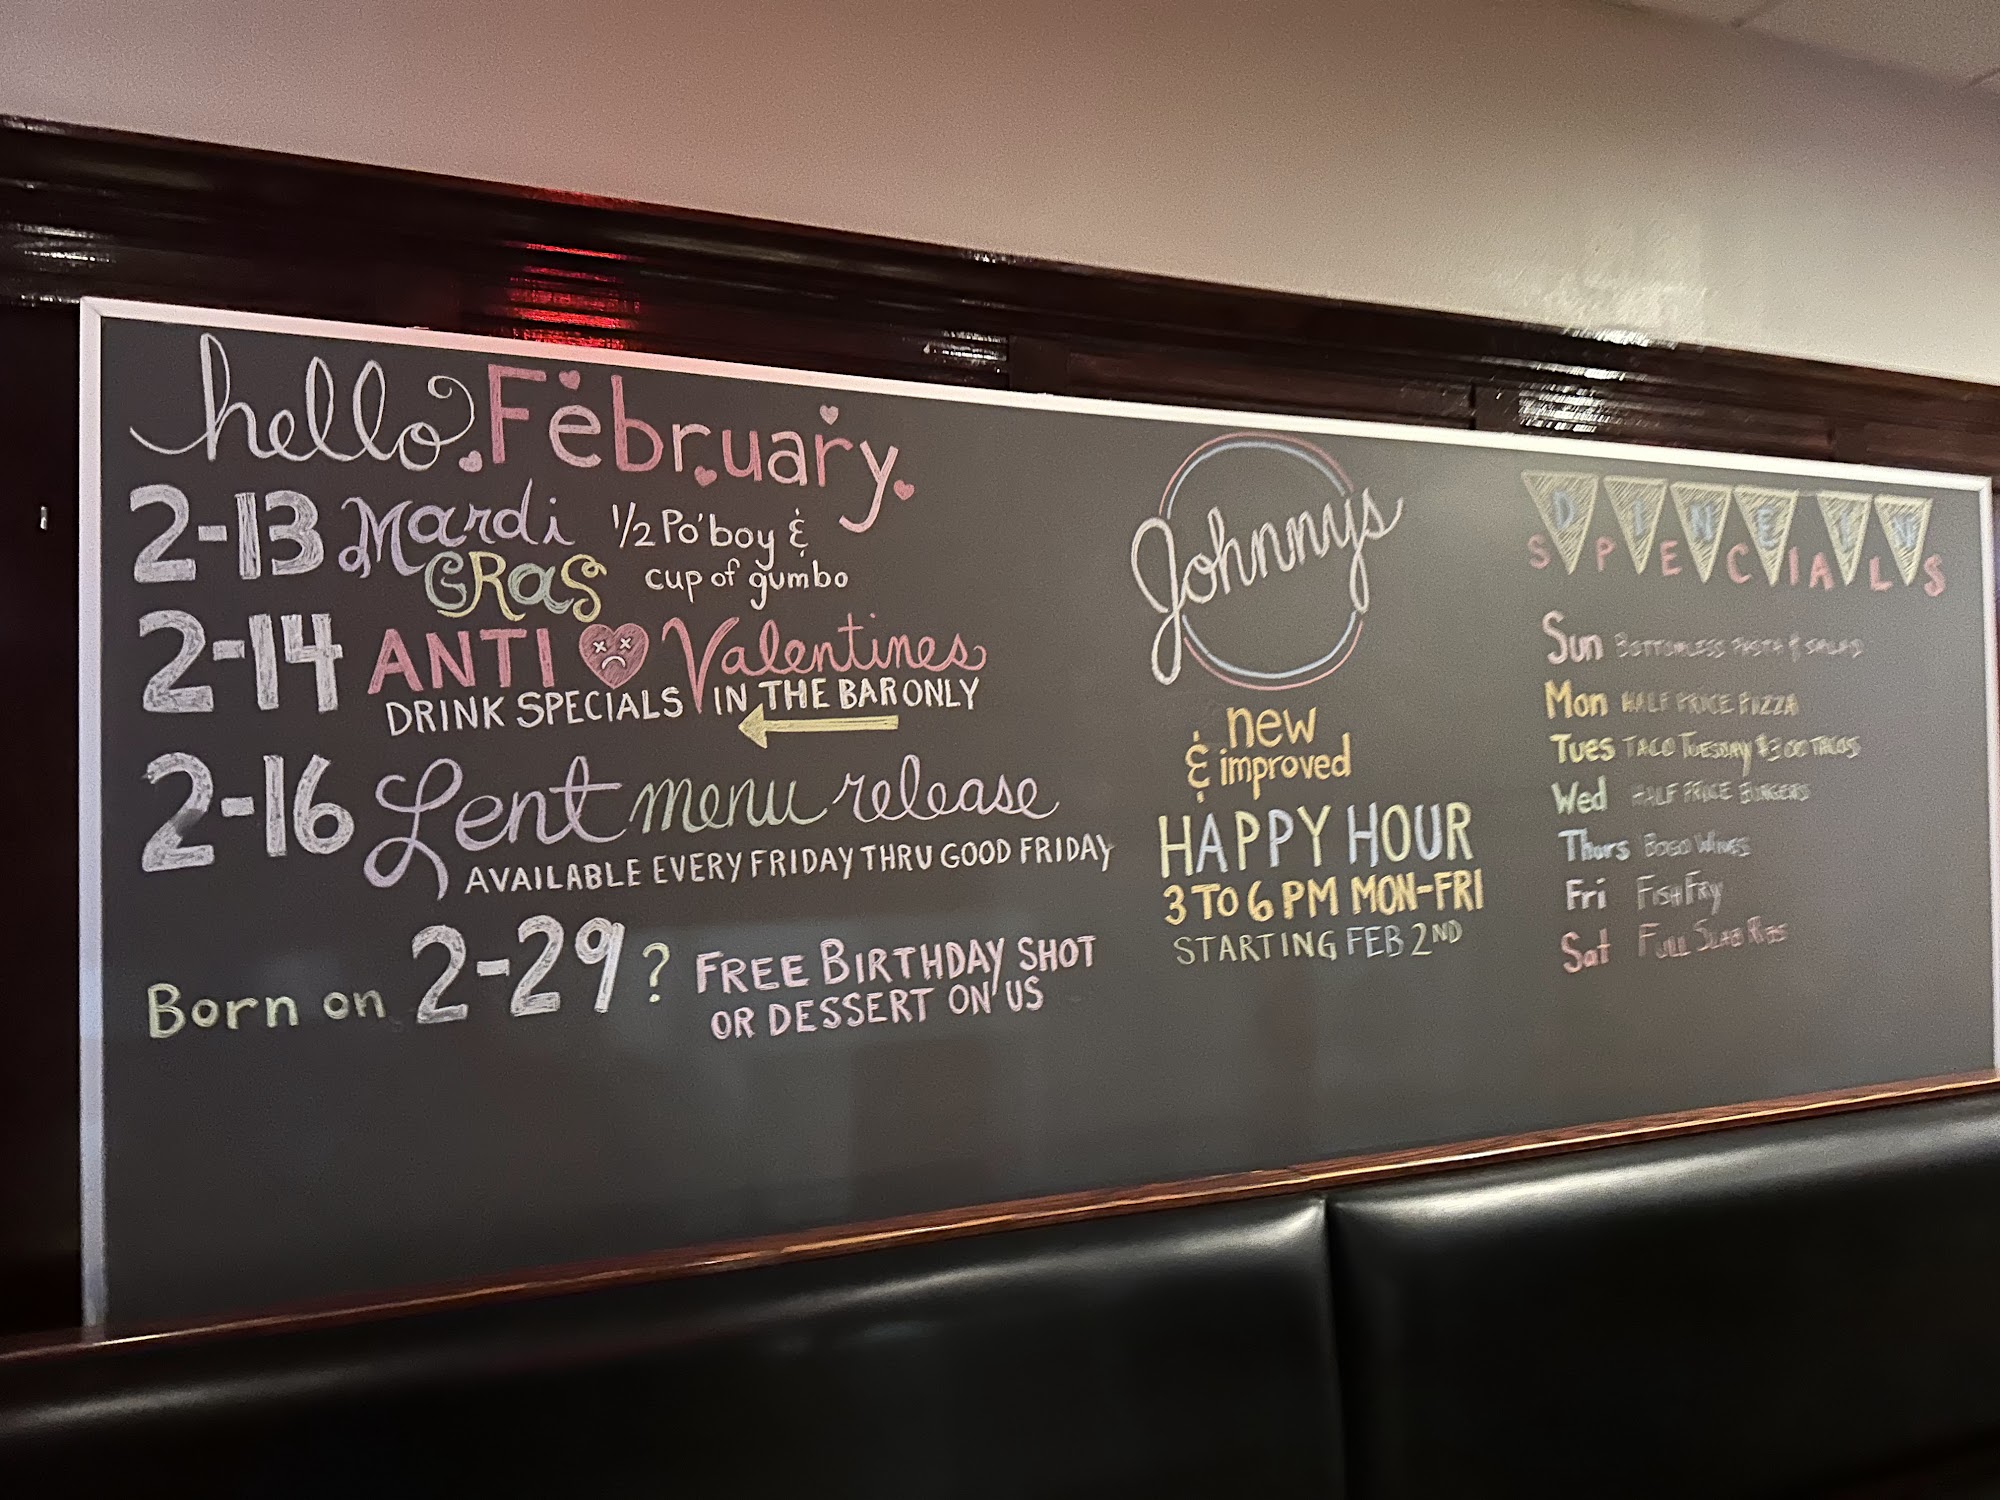 hello February
2-13 Mardi GRAS 1/2 Po'boy & cup of gumbo
2-14 ANTI Valentines
DRINK SPECIALS IN THE BAR ONLY
2-16 Lent menu release
AVAILABLE EVERY FRIDAY THRU GOOD FRIDAY
Born on 2-29? FREE BIRTHDAY SHOT
OR DESSERT ON US
Johnnys
new
& improved
HAPPY HOUR
3 TO 6 PM MON-FRI
STARTING FEB 2ND
DINE IN
SPECIALS
Sun BOTTOMLESS PASTA & SALAD
Mon HALF PRICE PIZZA
Tues TACO TUESDAY $3.00 TACOS
Wed HALF PRICE BURGERS
Thurs BOGO WINES
Fri FISH FRY
Sat FULL SLAB RIBS